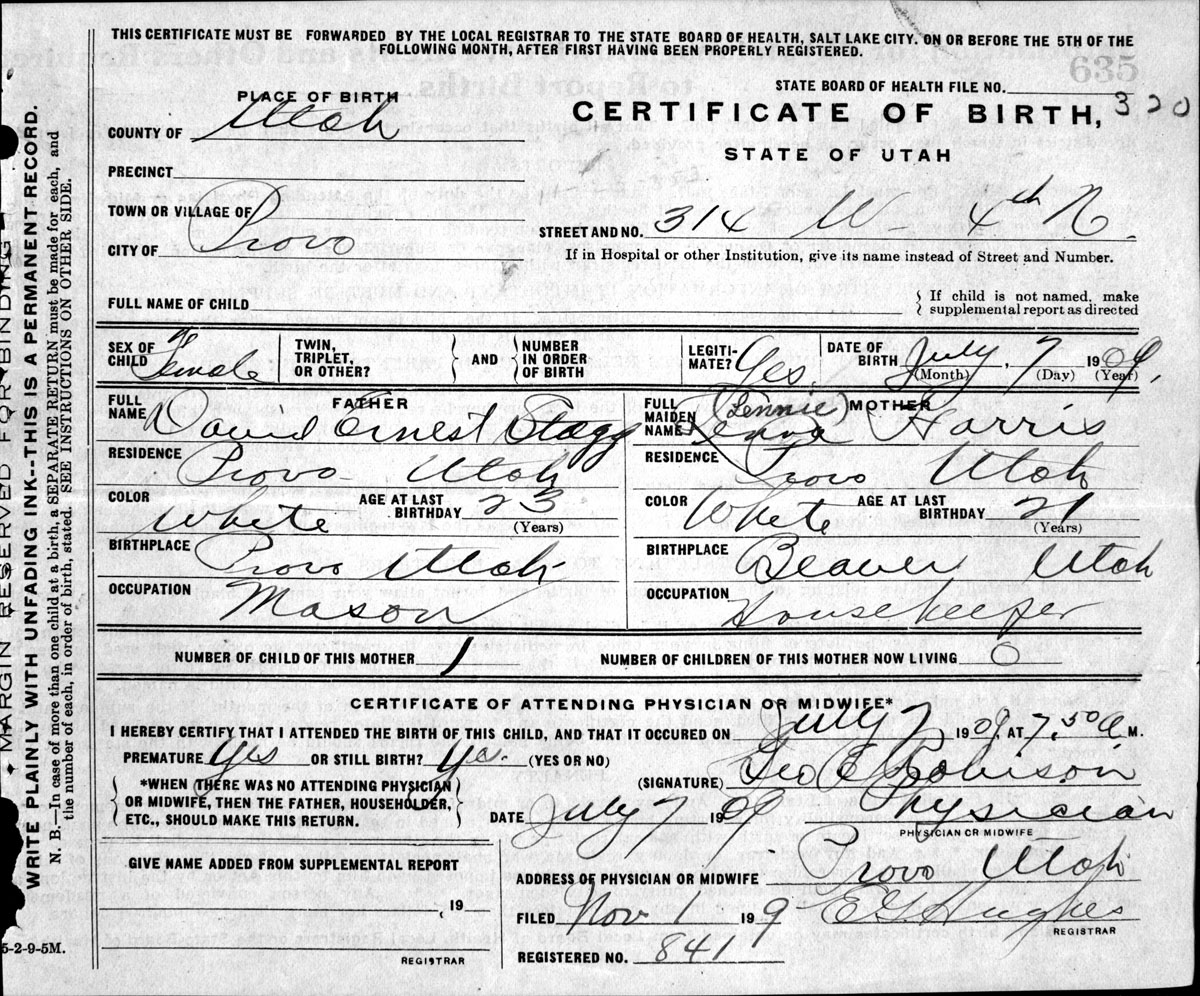 THIS CERTIFICATE MUST BE FORWARDED BY THE LOCAL REGISTRAR TO THE STATE BOARD OF HEALTH, SALT LAKE CITY. ON OR BEFORE THE 5TH OF THE
FOLLOWING MONTH, AFTER FIRST HAVING BEEN PROPERLY REGISTERED.
STATE BOARD OF HEALTH FILE NO.
PLACE OF BIRTH
CERTIFICATE OF BIRTH, 320
COUNTY OF Utah
STATE OF UTAH
PRECINCT
TOWN OR VILLAGE OF
STREET AND NO. 314 W 4th N.
CITY OF Provo
If in Hospital or other Institution, give its name instead of Street and Number.
FULL NAME OF CHILD
If child is not named, make
supplemental report as directed
SEX OF CHILD Female
TWIN, TRIPLET, OR OTHER?
AND
NUMBER IN ORDER OF BIRTH
LEGITIMATE? Yes.
DATE OF BIRTH July, 7 1909.
(Month) (Day) (Year)
FATHER
FULL NAME David Ernest Stagg
RESIDENCE Provo Utah
COLOR White AGE AT LAST BIRTHDAY 23
(Years)
BIRTHPLACE Provo Utah
OCCUPATION Mason
MOTHER
FULL MAIDEN NAME (Lennie) Harris
RESIDENCE Provo Utah
COLOR White AGE AT LAST BIRTHDAY 21
(Years)
BIRTHPLACE Beaver Utah
OCCUPATION Housekeeper
NUMBER OF CHILD OF THIS MOTHER 1 NUMBER OF CHILDREN OF THIS MOTHER NOW LIVING 0
CERTIFICATE OF ATTENDING PHYSICIAN OR MIDWIFE*
I HEREBY CERTIFY THAT I ATTENDED THE BIRTH OF THIS CHILD, AND THAT IT OCCURED ON July 7 1909, AT 7.50 A. M.
PREMATURE Yes OR STILL BIRTH? Yes. (YES OR NO)
(SIGNATURE) Geo E Robison
*WHEN THERE WAS NO ATTENDING PHYSICIAN
OR MIDWIFE, THEN THE FATHER, HOUSEHOLDER,
ETC., SHOULD MAKE THIS RETURN.
DATE July 7 1909 Physician
PHYSICIAN OR MIDWIFE
GIVE NAME ADDED FROM SUPPLEMENTAL REPORT
, 19
REGISTRAR
ADDRESS OF PHYSICIAN OR MIDWIFE Provo Utah
FILED Nov 1 199 E G Hughes
REGISTRAR
REGISTERED NO. 841
MARGIN RESERVED FOR BINDING
WRITE PLAINLY WITH UNFADING INK--THIS IS A PERMANENT RECORD.
N. B.—In case of more than one child at a birth, a SEPARATE RETURN must be made for each, and
the number of each, in order of birth, stated. SEE INSTRUCTIONS ON OTHER SIDE.
5-2-9-5M.